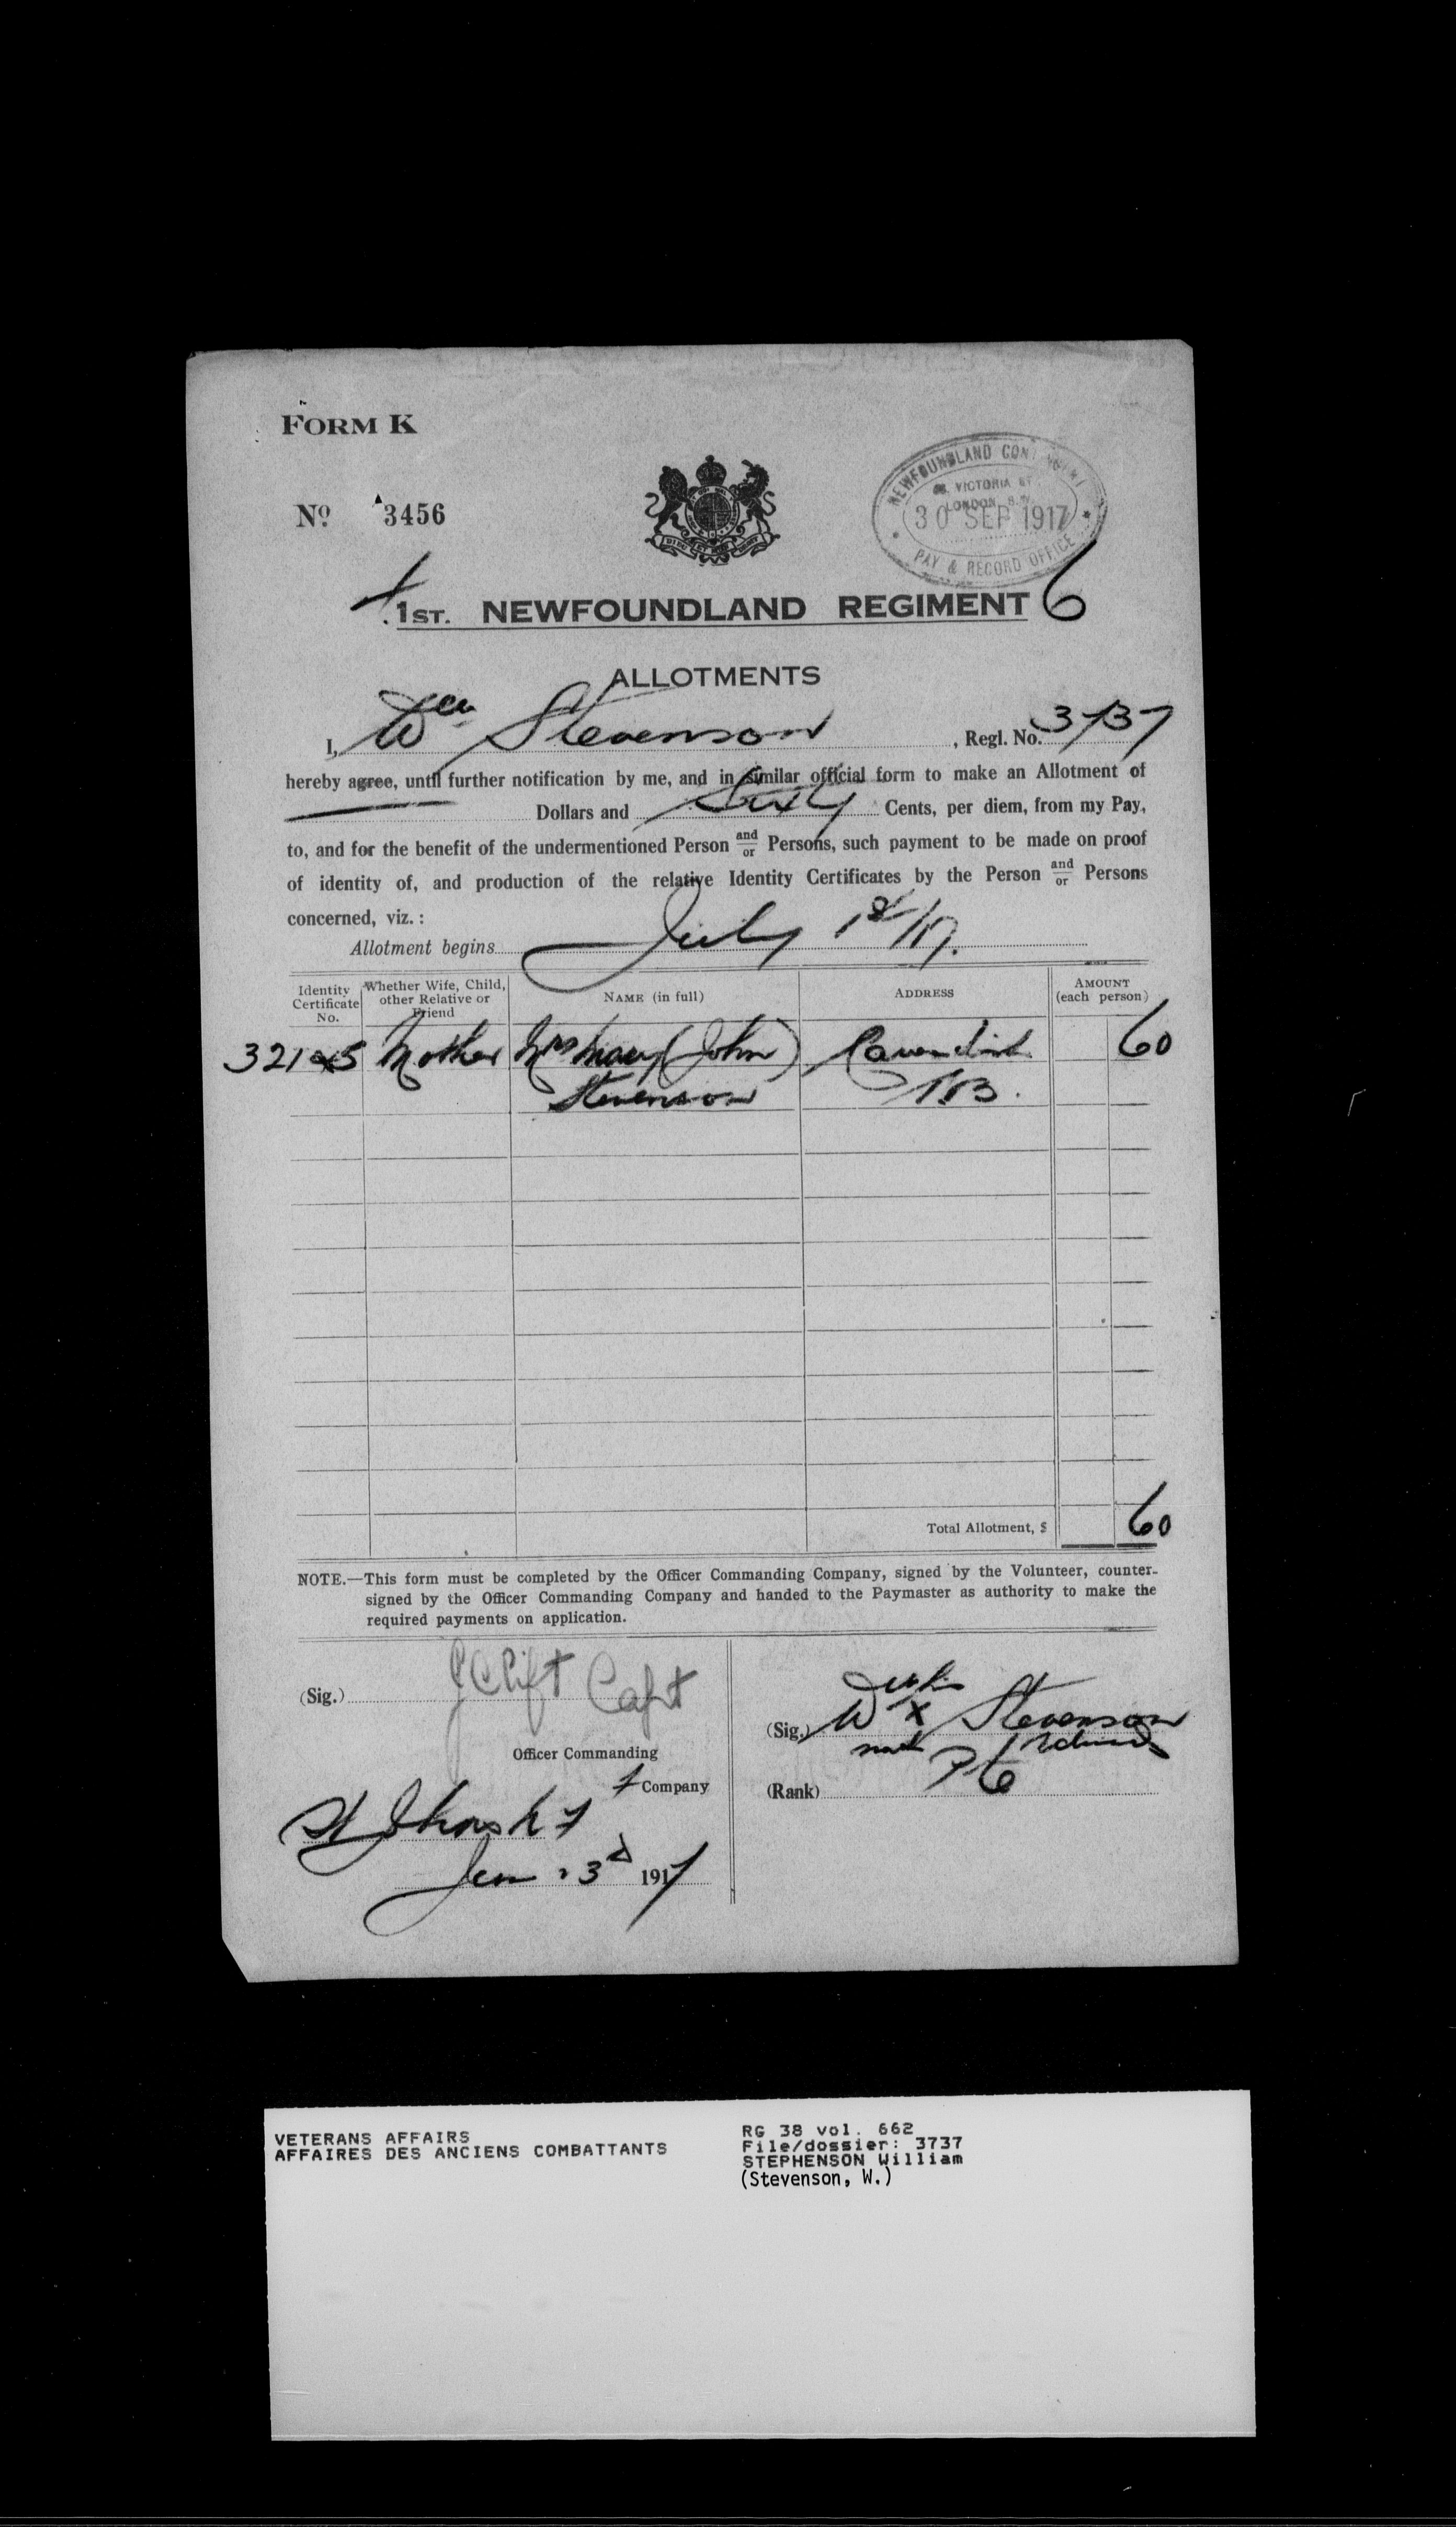 FORM K
No. 3456
NEWFOUNDLAND CONTINGENT
VICTORIA ST.
LONDON, S.W.
30 SEP 1917
PAY & RECORD OFFICE
1ST. NEWFOUNDLAND REGIMENT 6
ALLOTMENTS
I, Wm Stevenson, Regl. No. 3737
hereby agree, until further notification by me, and in similar official form to make an Allotment of
Dollars and Sixty Cents, per diem, from my Pay,
to, and for the benefit of the undermentioned Person and/or Persons, such payment to be made on proof
of identity of, and production of the relative Identity Certificates by the Person and/or Persons
concerned, viz. :
Allotment begins July 1st/17.
Identity Certificate No. Whether Wife, Child, other Relative or Friend NAME (in full) ADDRESS AMOUNT (each person)
Mother Mrs Mary (John) Cavendish 60
Stevenson T.B.
Total Allotment, $ 60
NOTE.—This form must be completed by the Officer Commanding Company, signed by the Volunteer, counter-
signed by the Officer Commanding Company and handed to the Paymaster as authority to make the
required payments on application.
(Sig.) J Clift Capt
Officer Commanding
Company
(Sig.) W X Stevenson
mark
(Rank) Pte
St Johns
1917
VETERANS AFFAIRS
AFFAIRES DES ANCIENS COMBATTANTS
RG 38 vol. 662
File/dossier: 3737
STEPHENSON William
(Stevenson, W.)